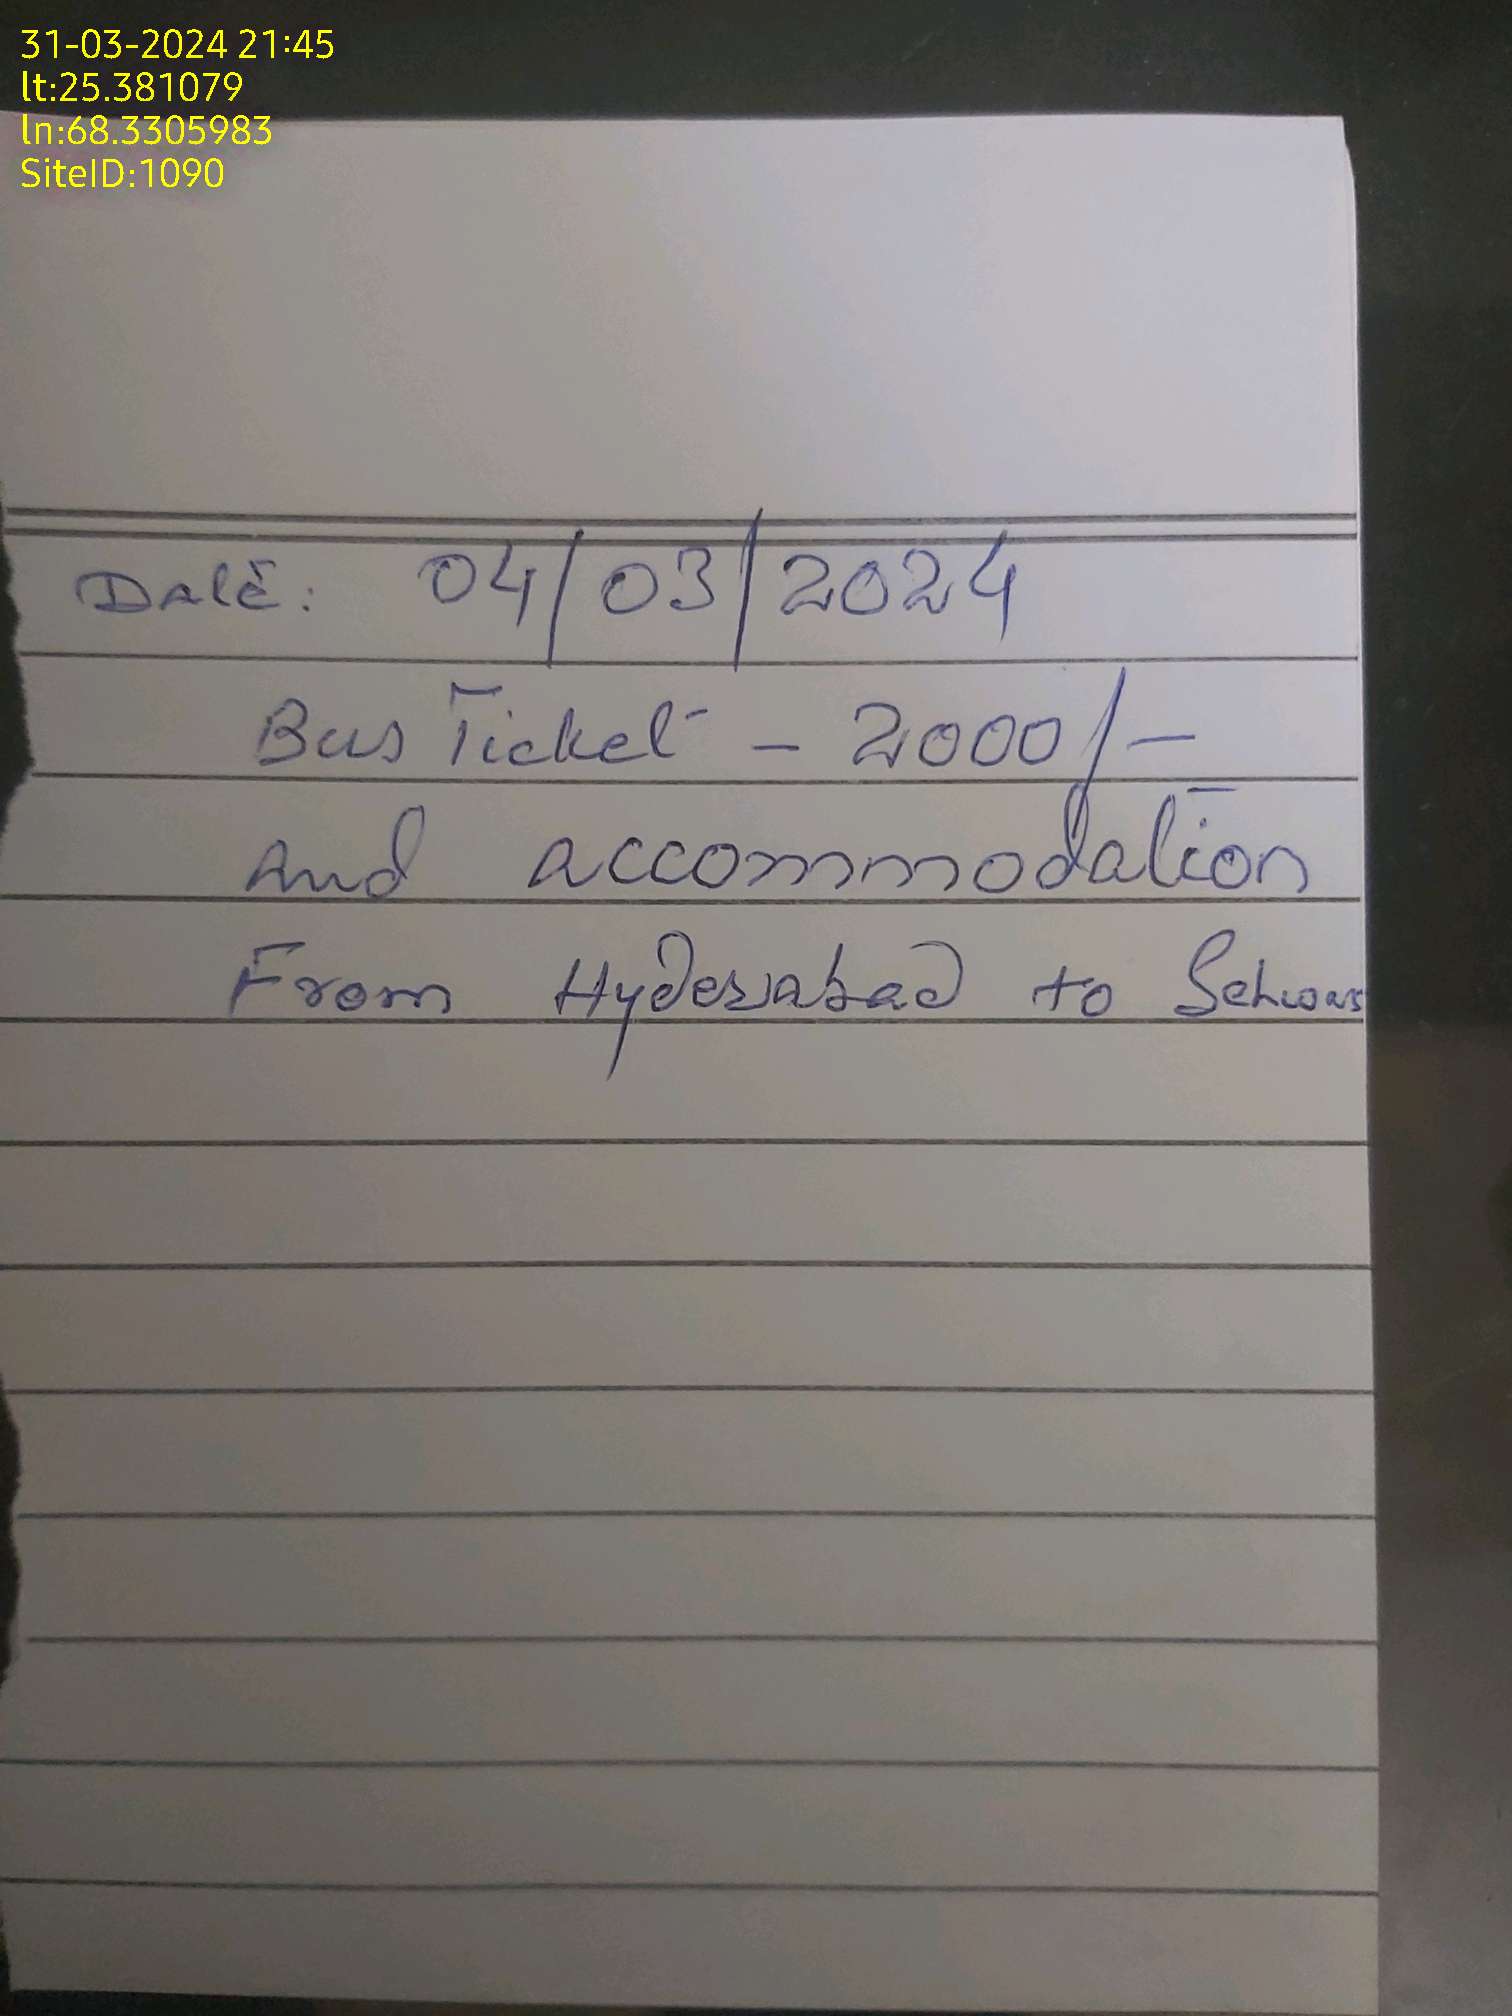 31-03-2024 21:45
lt:25.381079
ln:68.3305983
SiteID:1090
Date: 04/03/2024
Bus Ticket - 2000/-
And accommodation
From Hyderabad to Sehwan